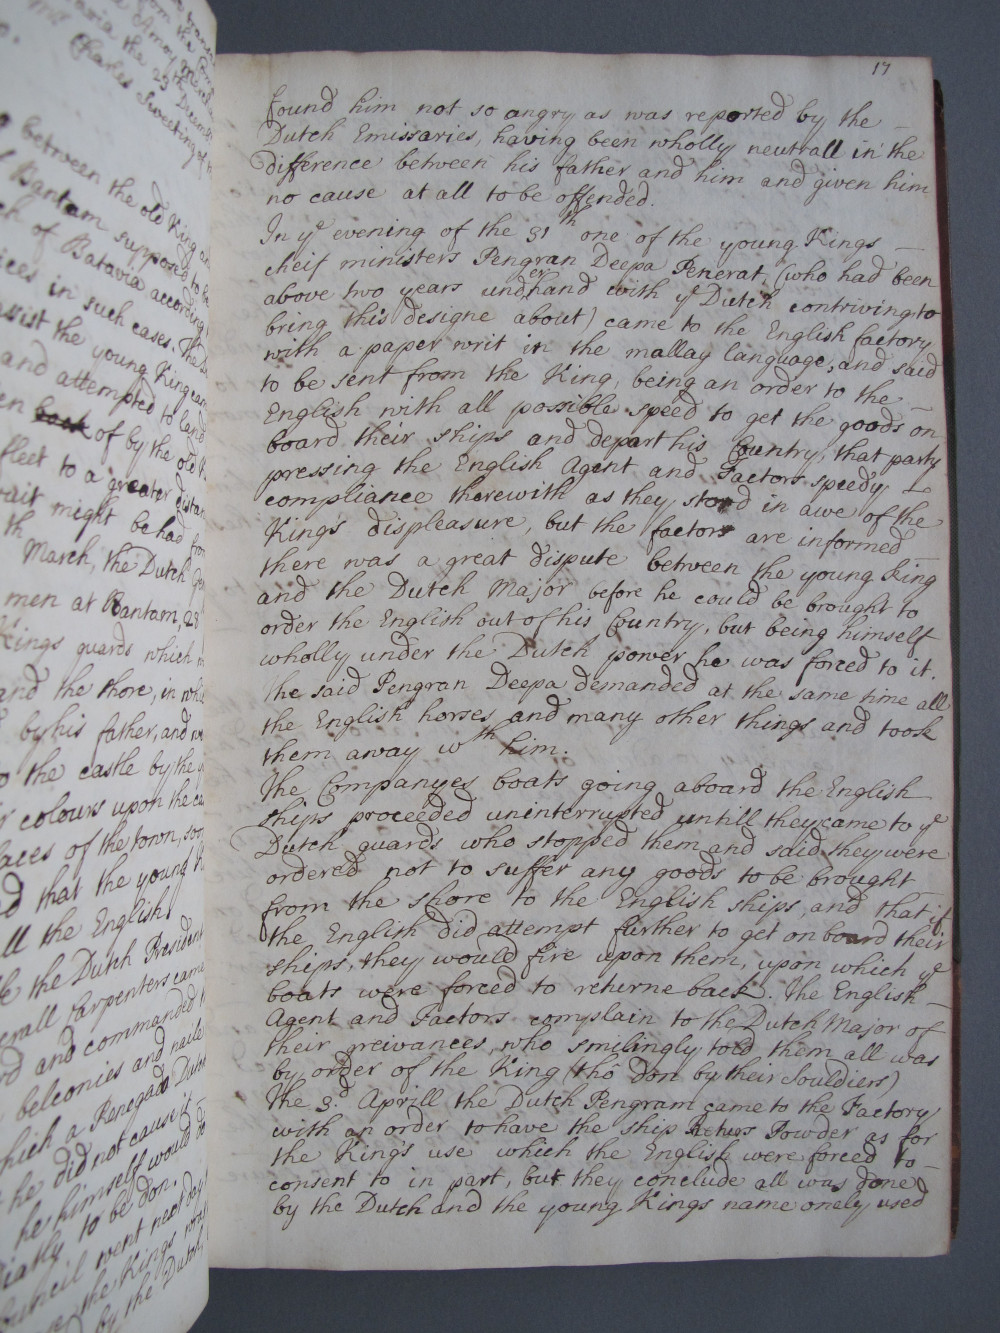 from the
Batavia the 29th Decemb
Charles Sweeting
between the old King
Bantam supposed to be
of Batavia according
in such cases. The
assist the young King
and attempted to land
of by the old
fleet to a greater distan
might be had from
March, the Dutch
men at Bantam, 28
Kings guards which
and the shore, in
by his father, and
to the castle by the
colours upon the
laces of the town,
that the young
all the English
the Dutch President
Carpenters came
and commanded
belconies and naile
which a Renegado Dutch
he did not cause it
he himself would
to be don.
went next day
the Kings
by the Dutch,
17
found him not so angry as was reported by the
Dutch Emissaries, having been wholly neutrall in the
difference between his father and him and given him
no cause at all to be offended.
In yᵉ evening of the 31ᵗʰ one of the young Kings
cheif ministers Pengran Deepa Penerat (who had been
above two years underhand with yᵉ Dutch contriving to
bring this designe about) came to the English factory
with a paper writ in the mallay language, and said
to be sent from the King, being an order to the
English with all possible speed to get the goods on
board their ships and depart his Country, that party
pressing the English Agent and Factors speedy
compliance therewith as they stood in awe of the
King's displeasure, but the factors are informed
there was a great dispute between the young King
and the Dutch Major before he could be brought to
order the English out of his Country, but being himself
wholly under the Dutch power he was forced to it.
The said Pengran Deepa demanded at the same time all
the English horses and many other things and took
them away wᵗʰ him.
The Companyes boats going aboard the English
ships proceeded uninterrupted untill they came to yᵉ
Dutch guards who stopped them and said they were
ordered not to suffer any goods to be brought
from the shore to the English ships, and that if
the English did attempt further to get on board their
ships, they would fire upon them, upon which yᵉ
boats were forced to returne back. The English
Agent and Factors complain to the Dutch Major of
their greivances, who smilingly told them all was
by order of the King (tho' don by their Souldiers)
The 3.ᵈ Aprill the Dutch Pengram came to the Factory
with an order to have the ship Powder as for
the King's use which the English were forced to
consent to in part, but they conclude all was done
by the Dutch and the young Kings name onely used